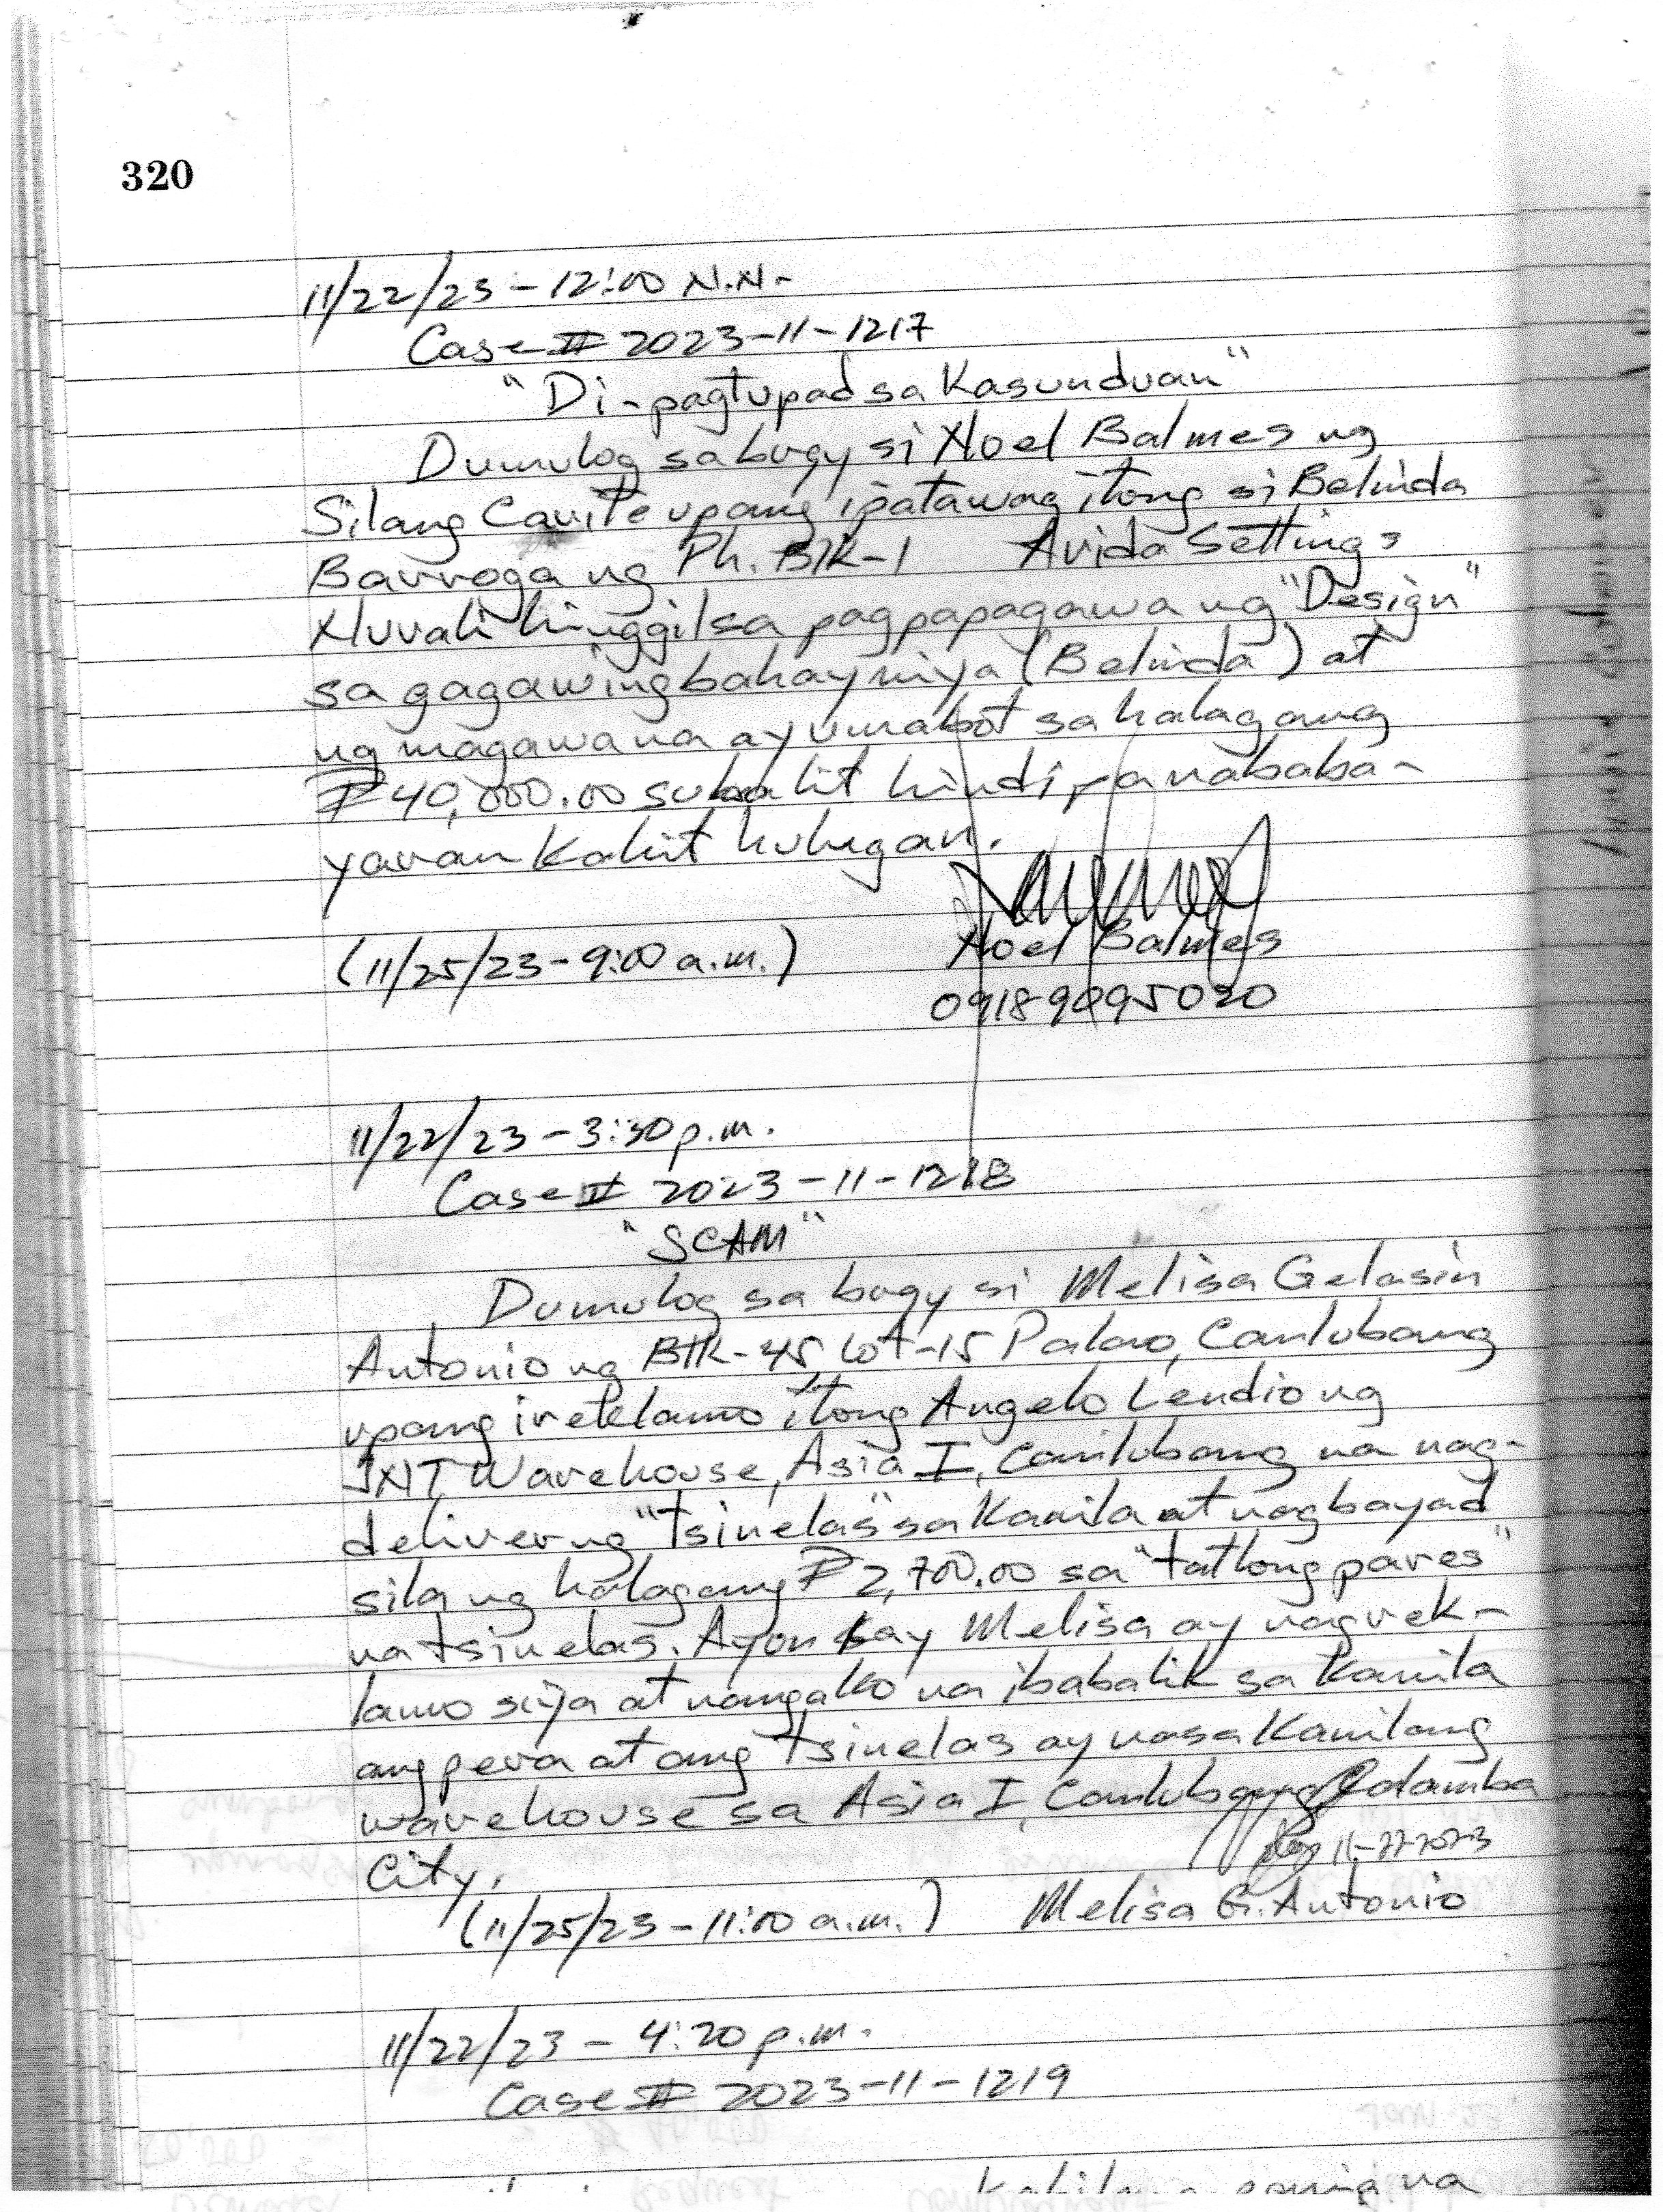 320
11/22/23 - 12:00 N.N.-
Case # 2023-11-1217
"Di-pagtupad sa Kasunduan"
Dumulog sa brgy si Noel Balmes ng
Silang Cavite upang ipatawag itong si Belinda
Barroga ng Ph. Blk-1 Avida Settings
Nuvali hinggil sa pagpapagawa ng "Design"
sa gagawing bahay niya (Belinda) at
ng magawa na ay umabot sa halagang
₱40,000.00 subalit hindi pa nababa-
yaran kahit hulugan.
(11/25/23-9:00 a.m.) Noel Balmes
11/22/23 - 3:30 p.m.
Case # 2023-11-1218
"SCAM"
Dumulog sa brgy si Melisa Gelasin
Antonio ng Blk-45 Lot-15 Palao, Canlubang
upang ireklamo itong Angelo Lendio ng
JNT Warehouse, Asia I, Canlubang na nag-
deliver ng "tsinelas" sa kanila at nagbayad
sila ng halagang ₱2,700.00 sa "tatlong pares"
na tsinelas. Ayon kay Melisa ay nagrek-
lamo siya at nangako na ibabalik sa kanila
ang pera at ang tsinelas ay nasa kanilang
warehouse sa Asia I, Canlubang Calamba
11-22-2023
City.
(11/25/23 - 11:00 a.m.) Melisa G. Antonio
11/22/23 - 4:20 p.m.
Case # 2023-11-1219